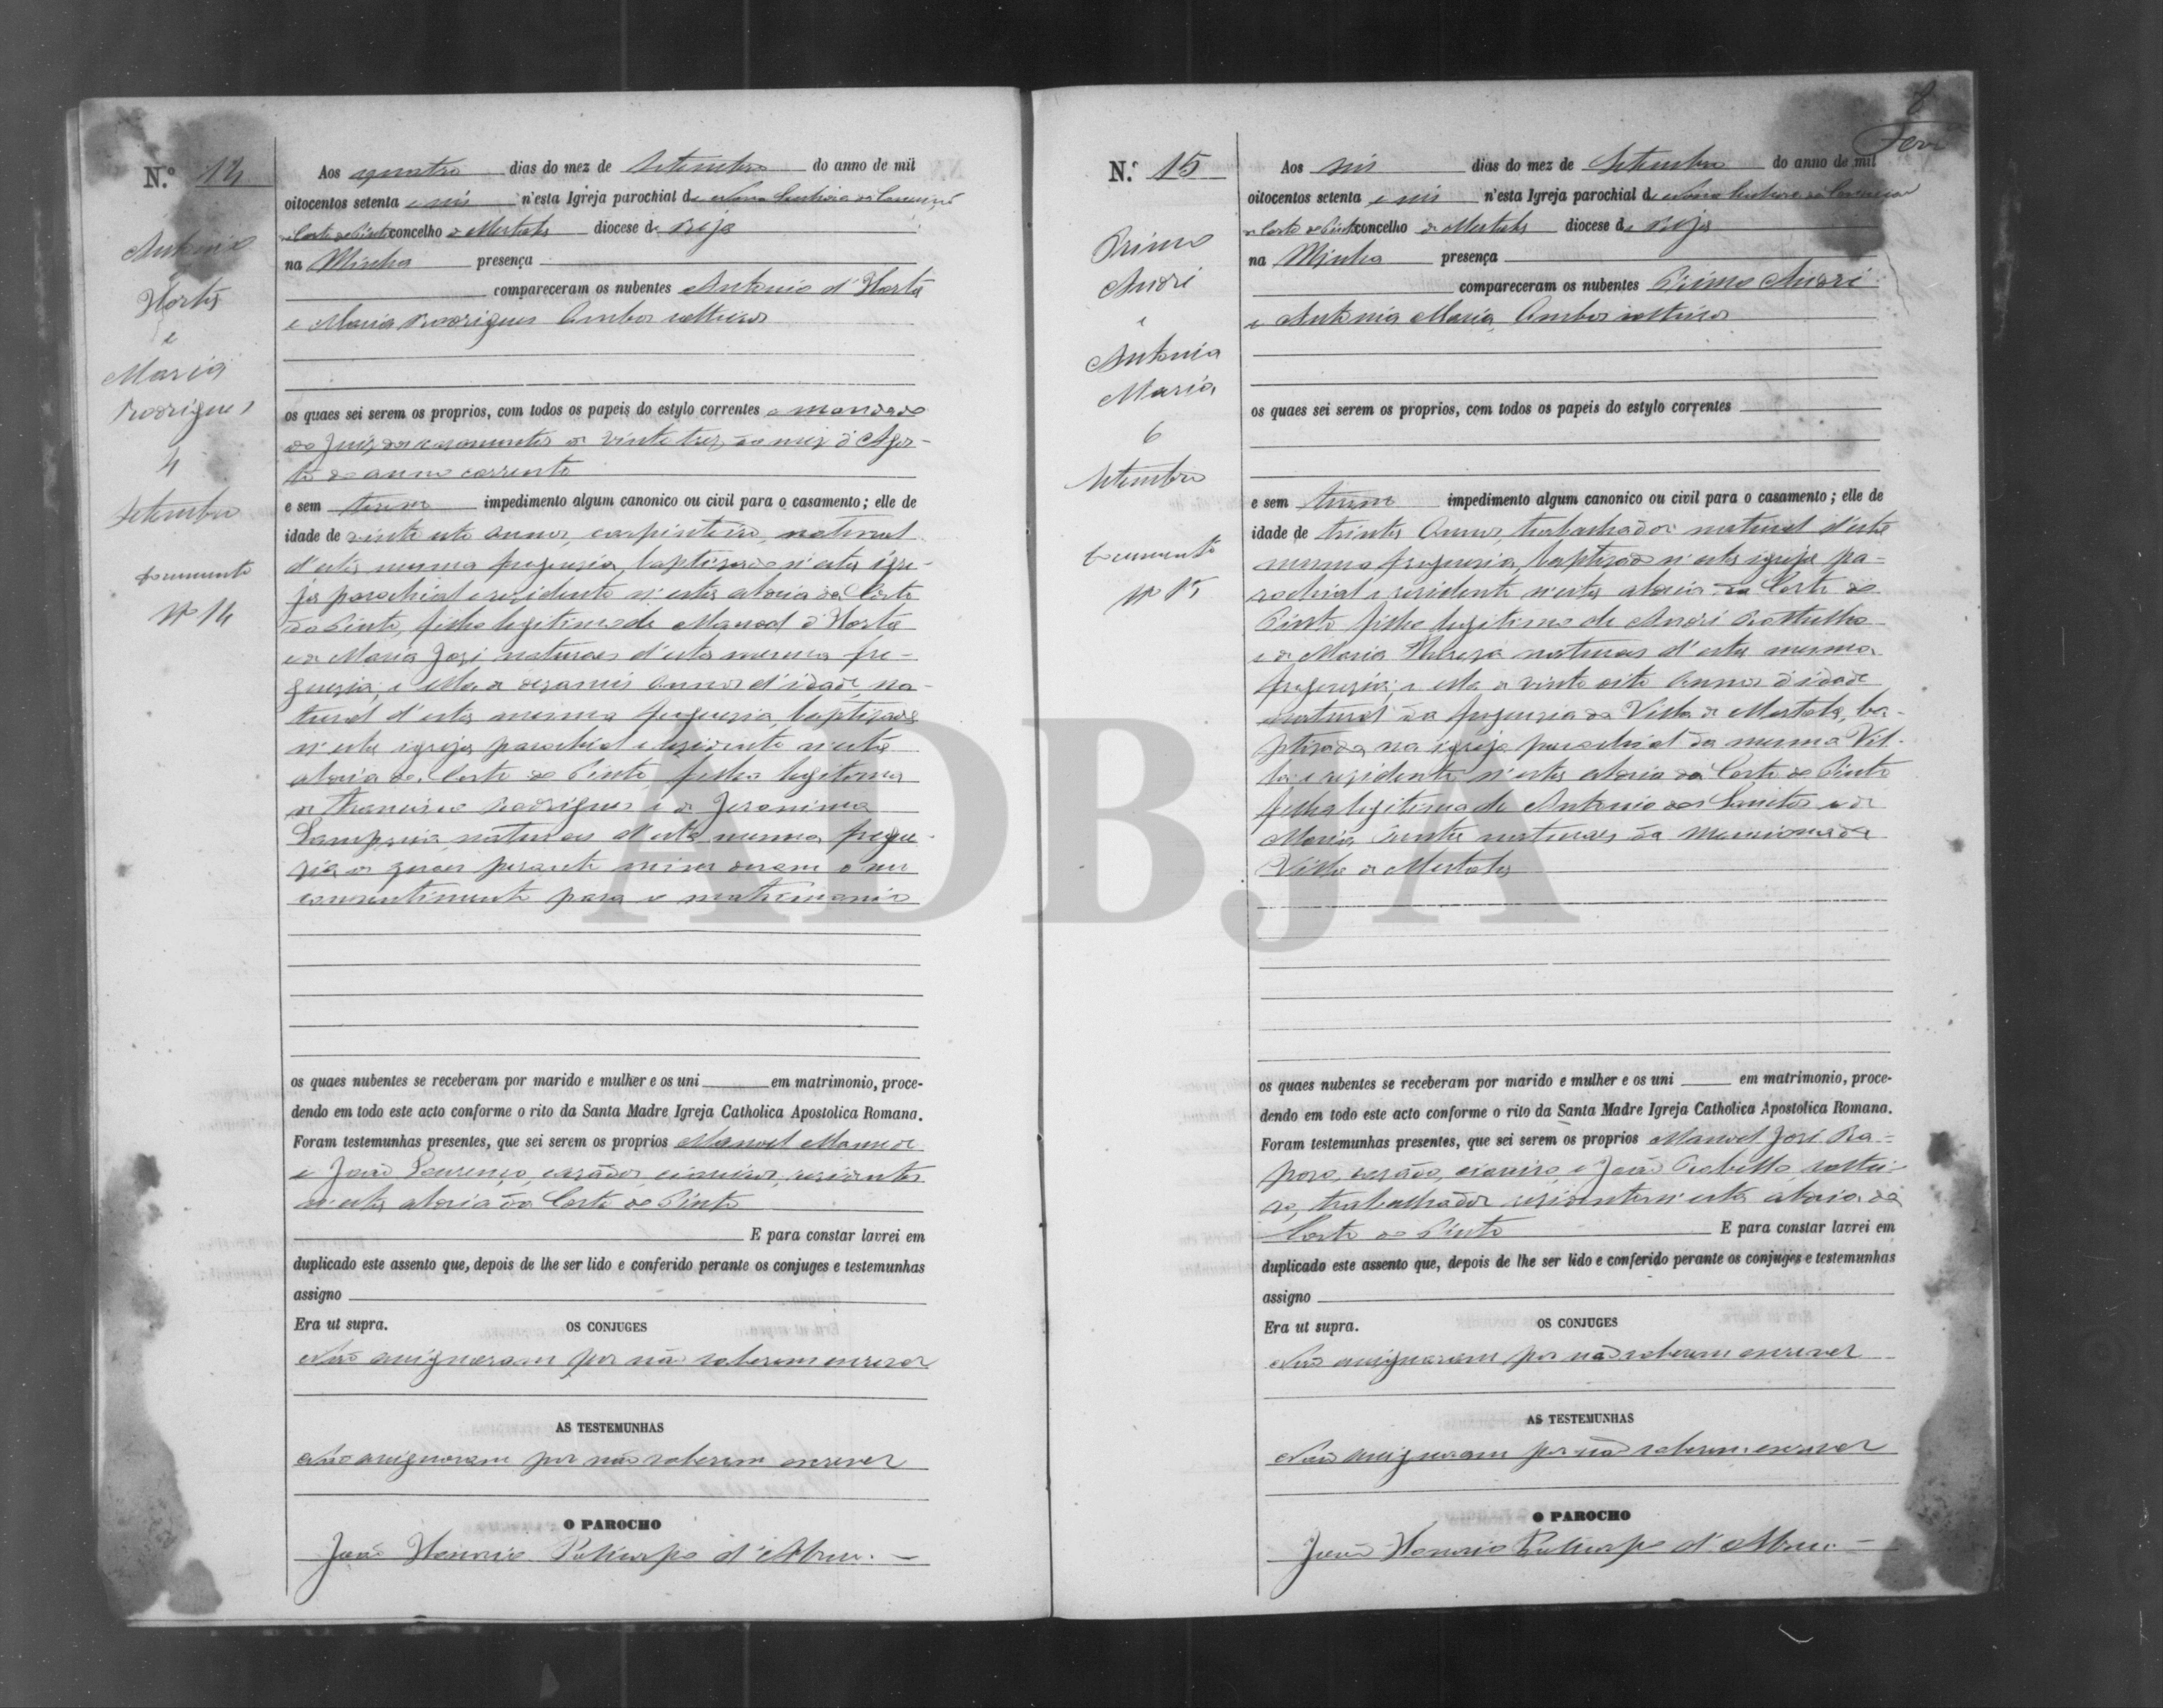 N.º 14
Antonio
Horta
e
Maria
Rodrigues
4
Setembro
Documento
Nº 14
Aos quatro dias do mez de Setembro do anno de mil
oitocentos setenta e seis n'esta Igreja parochial de Nossa Senhora da Conceição
da Corte do Pinto concelho de Mertola diocese de Beja
na Minha presença
compareceram os nubentes Antonio d'Horta
e Maria Rodrigues Ambos solteiros
os quaes sei serem os proprios, com todos os papeis do estylo correntes e mandado
do Juiz dos casamentos de vinte trez do mez d'Agos-
to do anno corrente
e sem terem impedimento algum canonico ou civil para o casamento; elle de
idade de vinte oito annos, carpinteiro, natural
d'esta mesma freguezia, baptizado n'esta igre-
ja parochial e rezidente n'esta aldeia da Corte
do Pinto, filho legitimo de Manoel d'Horta
e de Maria Jozé, naturaes d'esta mesma fre-
guezia, e ella de dezaseis annos d'idade, na-
tural d'esta mesma freguezia, baptizada
n'esta igreja parochial e rezidente n'esta
aldeia da Corte do Pinto, filha legitima
de Francisco Rodrigues e de Jeronima
naturaes d'esta mesma fregue-
zia os quaes perante mim deram o seu
consentimento para o matrimonio
os quaes nubentes se receberam por marido e mulher e os uni em matrimonio, proce-
dendo em todo este acto conforme o rito da Santa Madre Igreja Catholica Apostolica Romana.
Foram testemunhas presentes, que sei serem os proprios Manoel
e João Lourenço, cazados, rezidentes
n'esta aldeia da Corte do Pinto
E para constar lavrei em
duplicado este assento que, depois de lhe ser lido e conferido perante os conjuges e testemunhas
assigno
Era ut supra.
OS CONJUGES
Não assignaram por não saberem escrever
AS TESTEMUNHAS
Não assignaram por não saberem escrever
O PAROCHO
João Honorio Policarpo d'Abreu.
8
N.º 15
Primo
André
e
Antonia
Maria
6
Setembro
Documento
Nº 15
Aos seis dias do mez de Setembro do anno de mil
oitocentos setenta e seis n'esta Igreja parochial de Nossa Senhora da Conceição
da Corte do Pinto concelho de Mertola diocese de Beja
na Minha presença
compareceram os nubentes Primo André
e Antonia Maria Ambos solteiros
os quaes sei serem os proprios, com todos os papeis do estylo correntes
e sem terem impedimento algum canonico ou civil para o casamento; elle de
idade de trinta annos, trabalhador natural d'esta
mesma freguezia, baptizado n'esta igreja pa-
rochial e rezidente n'esta aldeia da Corte do
Pinto filho legitimo de André
e de Maria Thereza naturaes d'esta mesma
freguezia; e ella de vinte oito annos d'idade
natural da freguezia da Villa de Mertola, ba-
ptizada na igreja parochial da mesma Vil-
la e rezidente n'esta aldeia da Corte do Pinto
filha legitima de Antonio dos Santos e de
Maria Benta naturaes da mencionada
Villa de Mertola
os quaes nubentes se receberam por marido e mulher e os uni em matrimonio, proce-
dendo em todo este acto conforme o rito da Santa Madre Igreja Catholica Apostolica Romana.
Foram testemunhas presentes, que sei serem os proprios Manoel José Ra-
pozo, cazado, e João soltei-
ro, trabalhador rezidentes n'esta aldeia da
Corte do Pinto E para constar lavrei em
duplicado este assento que, depois de lhe ser lido e conferido perante os conjuges e testemunhas
assigno
Era ut supra.
OS CONJUGES
Não assignaram por não saberem escrever
AS TESTEMUNHAS
Não assignaram por não saberem escrever
O PAROCHO
João Honorio Policarpo d'Abreu
ADBJA